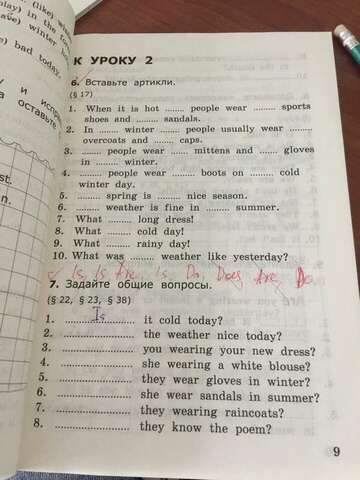 (like)
play) in the
ave) winter
bad today.
и испр
оставьте
st.
n.
К УРОКУ 2
6. Вставьте артикли.
(§ 17)
1. When it is hot ......... people wear ......... sports
shoes and ......... sandals.
2. In ......... winter ......... people usually wear .........
overcoats and ......... caps.
3. ......... people wear ......... mittens and ...... gloves
in ......... winter.
4. ......... people wear ......... boots on ......... cold
winter day.
5. ......... spring is ......... nice season.
6. ......... weather is fine in ......... summer.
7. What ......... long dress!
8. What ......... cold day!
9. What ......... rainy day!
10. What was ......... weather like yesterday?
Is, Is Are, Is, Do, Does Are, Do
7. Задайте общие вопросы.
(§ 22, § 23, § 38)
1. Is it cold today?
2. .................... the weather nice today?
3. .................... you wearing your new dress?
4. .................... she wearing a white blouse?
5. .................... they wear gloves in winter?
6. .................... she wear sandals in summer?
7. .................... they wearing raincoats?
8. .................... they know the poem?
9